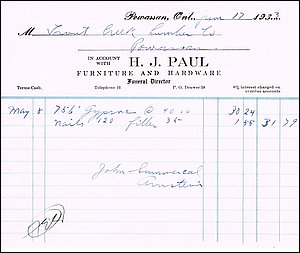 Powassan, Ont., Jan 17 1933
M Trout Creek Lumber Co
Powassan
IN ACCOUNT WITH
H. J. PAUL
FURNITURE AND HARDWARE
Funeral Director
Terms Cash. Telephone 26 P. O. Drawer 58 % interest charged on overdue accounts
May 8 756' Gyproc @ 40 00 30 24
Nails 120 filler 35 1 55 31 79
John